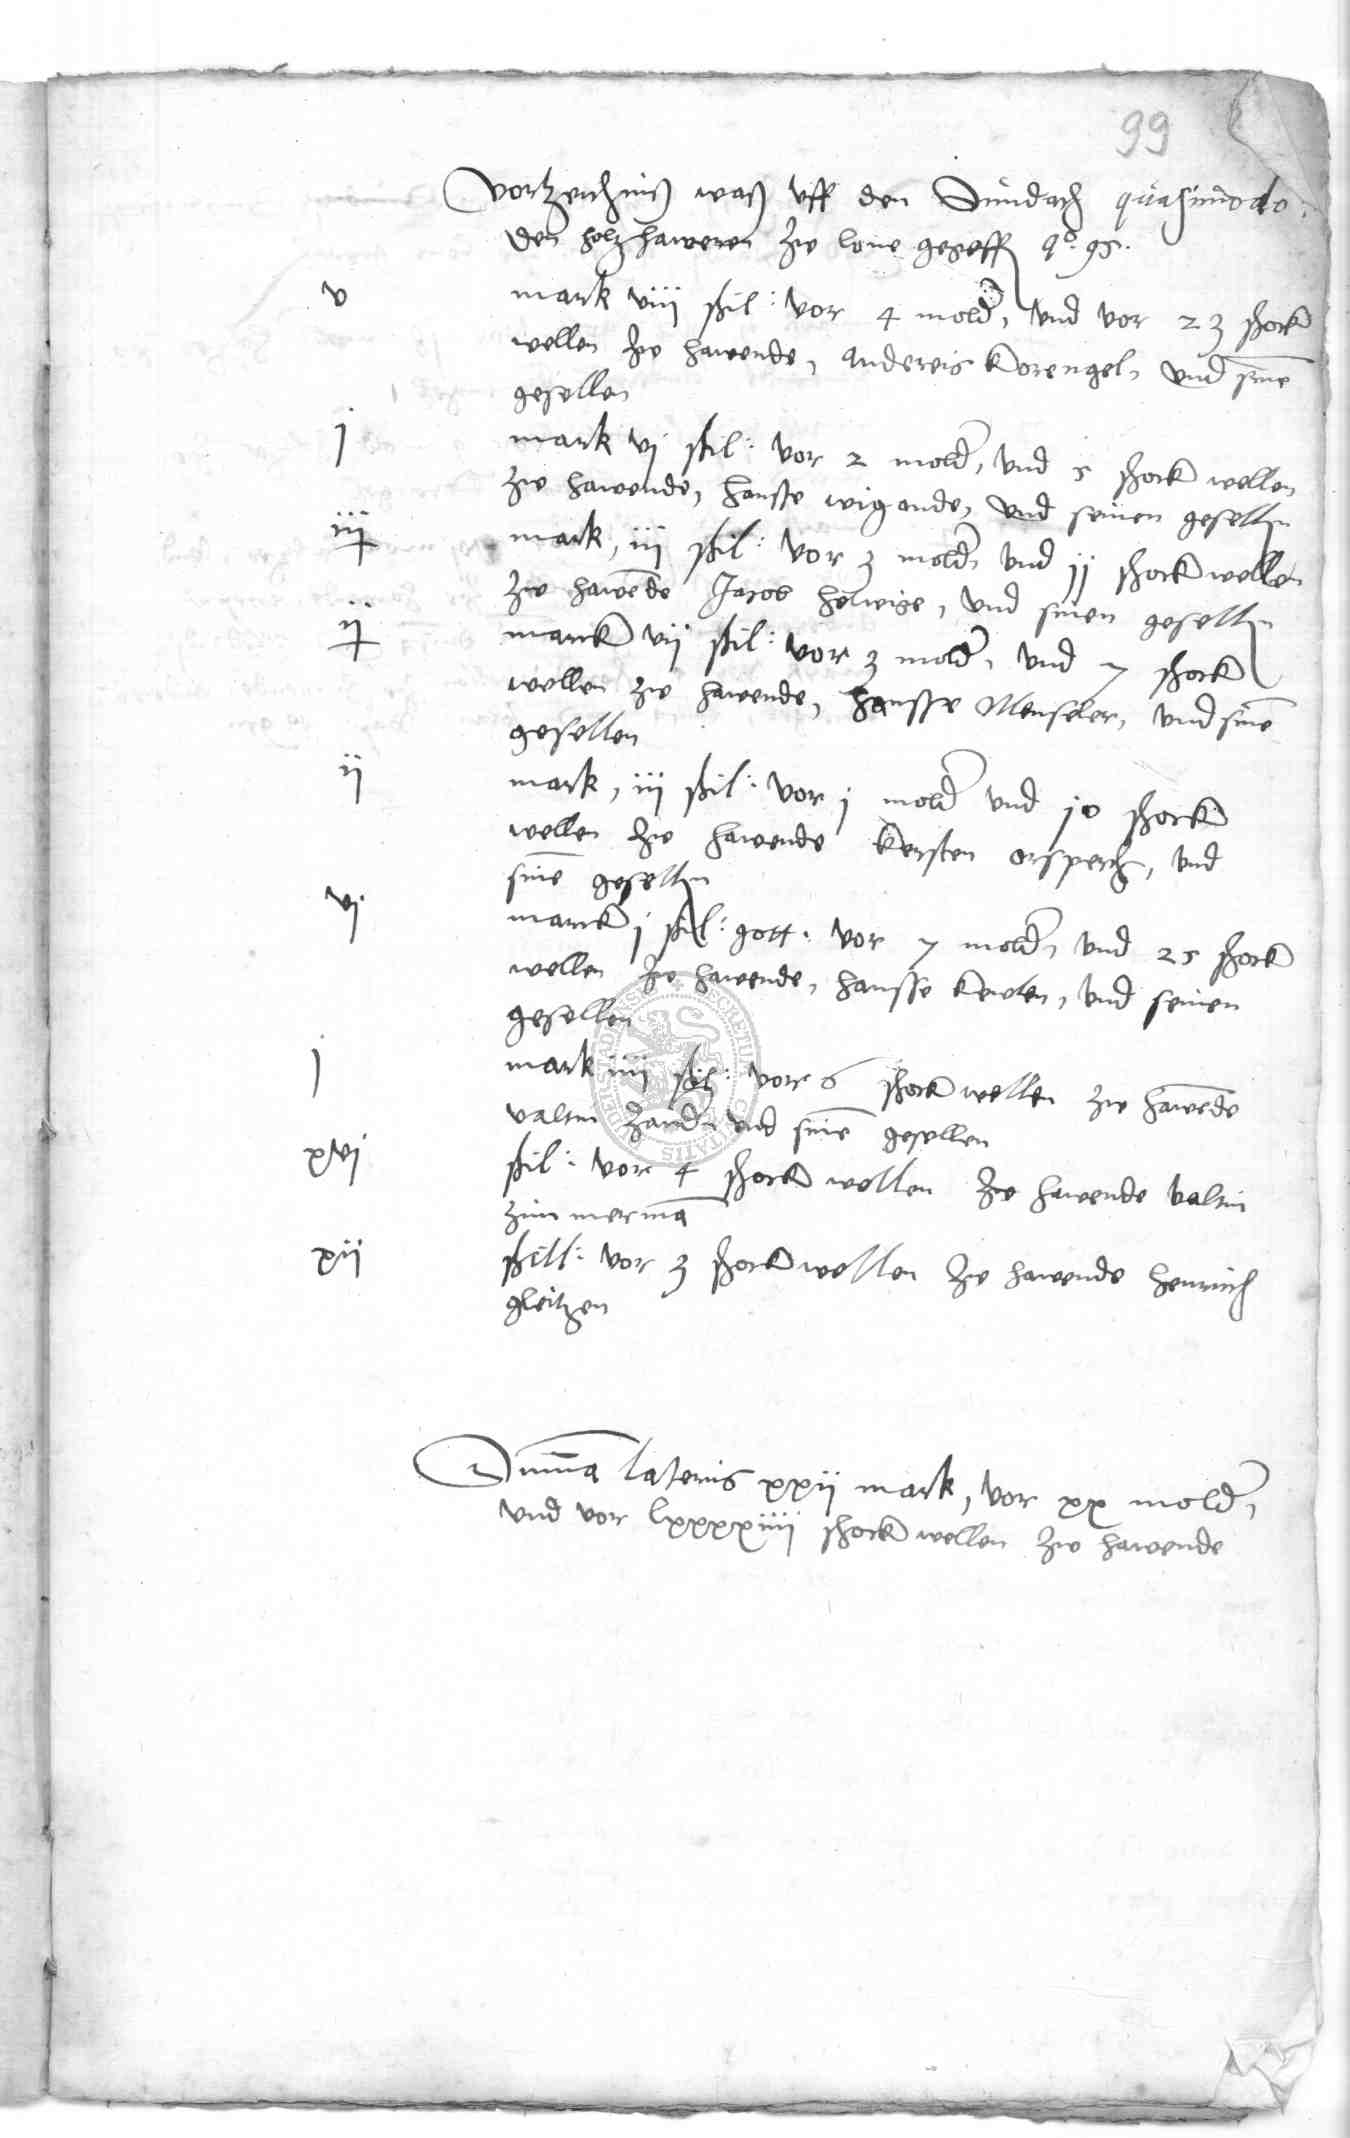 99
Vortzeichniß waß vff den Sundach quasimodo.
den holtzhaweren zw lone
v mark viii ßkil: vor 4 mold, vnd vor 23 schock
wellen zw hawende, andereis korengel, vnd sine
gesellen
j mark vj ßkil: vor 2 mold, vnd 5 schock wellen
zw hawende, hansse wigande, vnd seinen geselln
iii mark, iij ßkil: vor 3 mold vnd jj schock wellen
zw hawende Jacob helwige, vnd sinen geselln
ii marck vij ßkil: vor 3 mold, vnd 7 schock
wellen zw hawende, hansse Menseler, vnd sine
gesellen
ii mark, iii ßkil: vor j mold vnd jo schock
wellen zw hawende kersten orsperch, vnd
sine geselln
vj marck j ßkil: gott. vor 7 mold, vnd 25 schock
wellen zw hawende, hansse vnd seinen
gesellen
j mark iiij ßkil: vor 6 schock wellen zw hawede
valtin zand vnd sine gesellen
xvj ßkil: vor 4 schock wellen zw hawende valtin
zimmerma
xii ßkill: vor 3 schock wellen zw hawende henrich
gleitzen
Suma lateris xxii mark, vor xx mold,
vnd vor lxxxxiiij schock wellen zw hawende